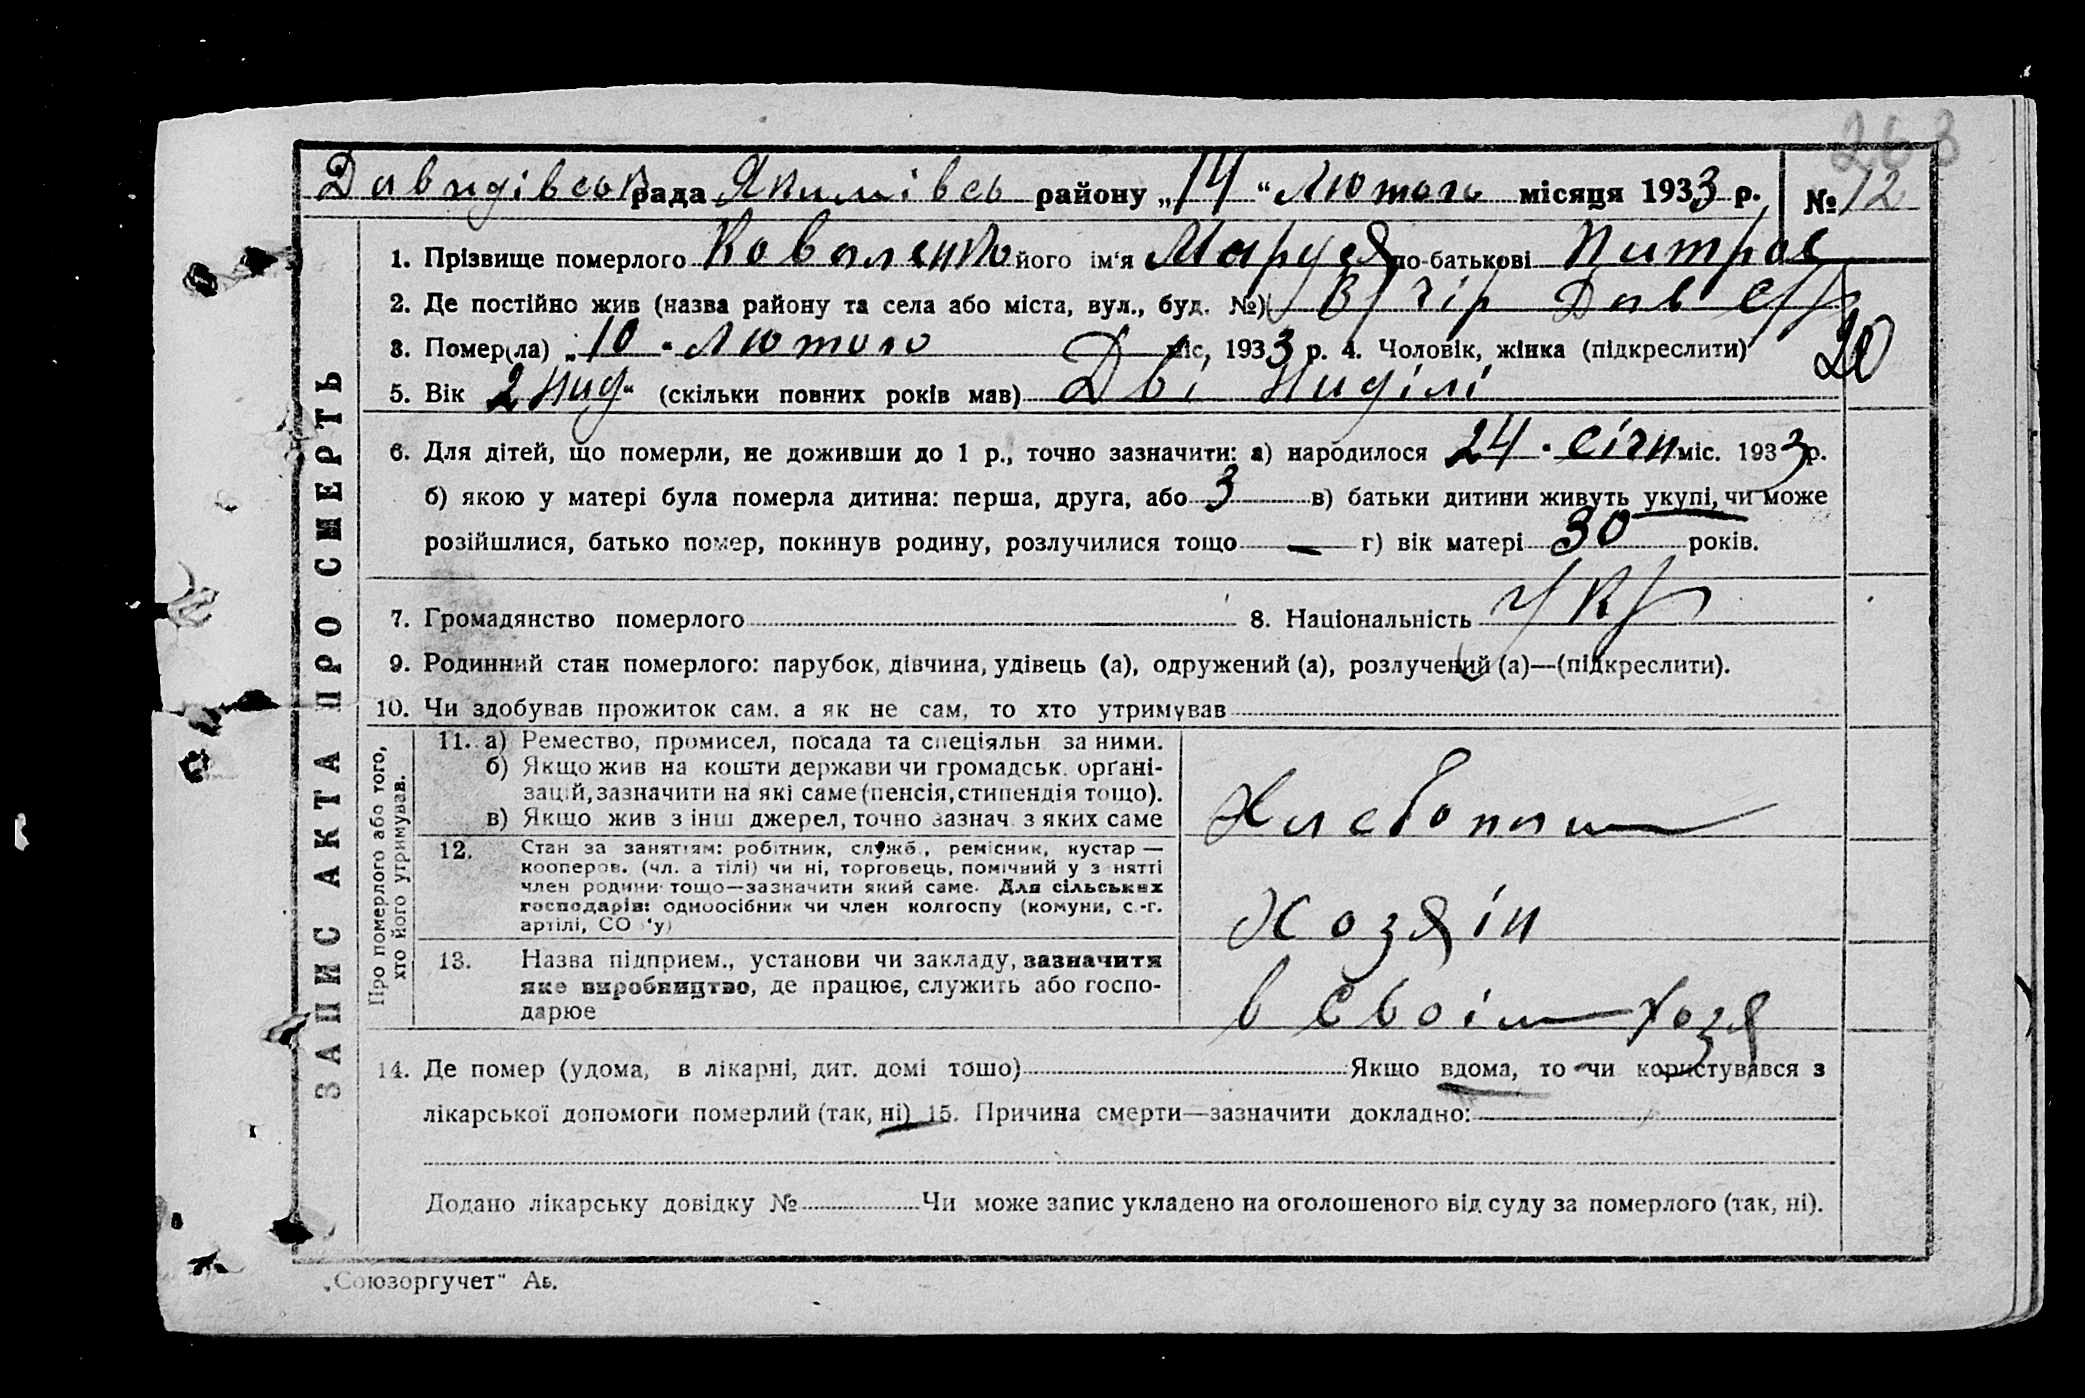 263
Давидівськ рада Якимівсь районy „14“ Лютого місяця 1933 р. № 12
ЗАПИС АКТА ПРО СМЕРТЬ
1. Прізвище померлого Коваленко його ім'я Маруся по-батькові Питров
2. Де постійно жив (назва району та села або міста, вул., буд. №)
3. Помер(ла) „10“ Лютого міс, 1933 р. 4. Чоловік, жінка (підкреслити)
20
5. Вік 2 нид“ (скільки повних років мав) Дві Ниділі
6. Для дітей, що померли, не доживши до 1 р., точно зазначити: а) народилося 24. січн міс. 1933 р.
б) якою у матері була померла дитина: перша, друга, або 3 в) батьки дитини живуть укупі, чи може
розійшлися, батько помер, покинув родину, розлучилися тощо — г) вік матері 30 років.
7. Громадянство померлого 8. Національність Укр
9. Родинний стан померлого: парубок, дівчина, удівець (а), одружений (а), розлучений (а)—(підкреслити).
10. Чи здобував прожиток сам, а як не сам, то хто утримував
Про померлого або того,
хто його утримував.
11. а) Ремество, промисел, посада та спеціяльн за ними.
б) Якщо жив на кошти держави чи громадськ. орґані-
зацій, зазначити на які саме (пенсія, стипендія тощо).
в) Якщо жив з інш джерел, точно зазнач. з яких саме
Хлебопаш
12. Стан за заняттям: робітник, служб., ремісник, кустар —
кооперов. (чл. а тілі) чи ні, торговець, помічний у з нятті
член родини тощо—зазначити який саме. Для сільських
господарів: одноосібник чи член колгоспу (комуни, с.-г.
артілі, СО 'у)
хозяін
13. Назва підприєм., установи чи закладу, зазначити
яке виробництво, де працює, служить або госпо-
дарює
в своім хозя
14. Де помер (удома, в лікарні, дит. домі тошо) Якщо вдома, то чи користувався з
лікарської допомоги померлий (так, ні) 15. Причина смерти—зазначити докладно:
Додано лікарську довідку № Чи може запис укладено на оголошеного від суду за померлого (так, ні).
„Союзоргучет“ Аь.